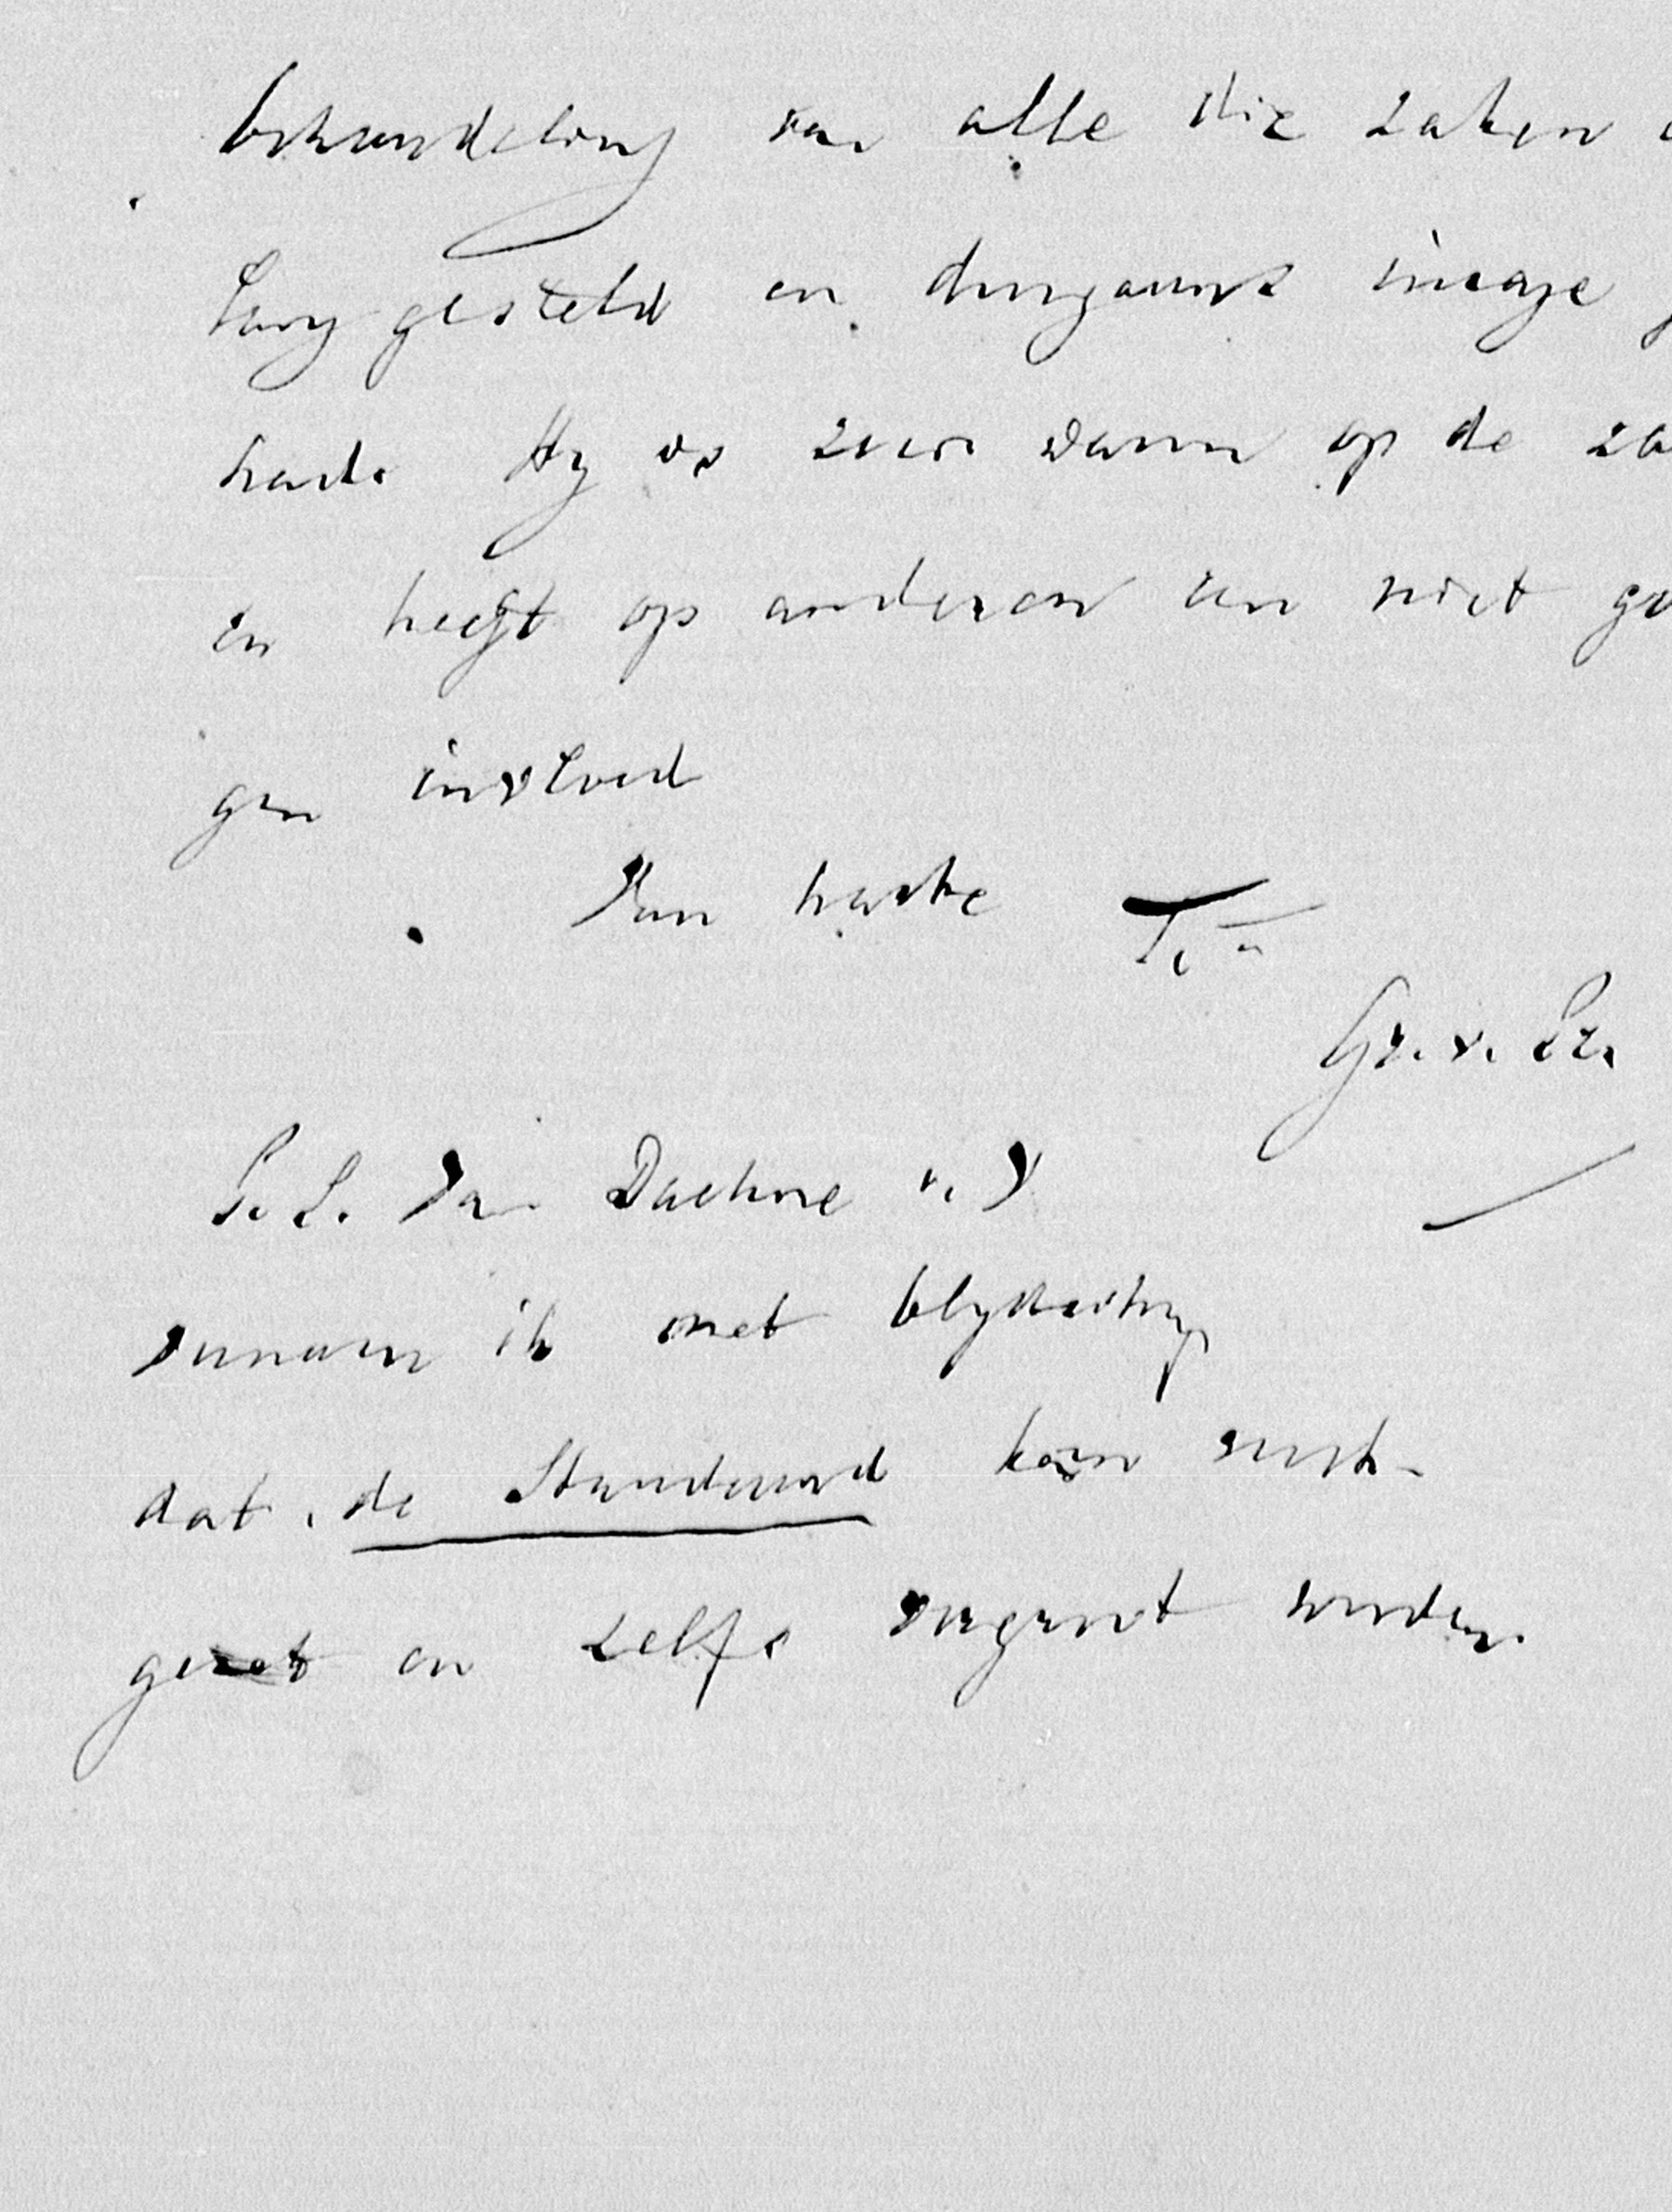 behandeling van alle die zaken
lang gesteld en
hard. Hy is zeer warm op de
en heeft op anderen een niet
gen invloed
Van harte T. t.
Gr. v. Pr.
P.S. Van Daehne v. V
vernam ik met blydschap
dat de Standaard kan
gezet en zelfs vergroot worden.